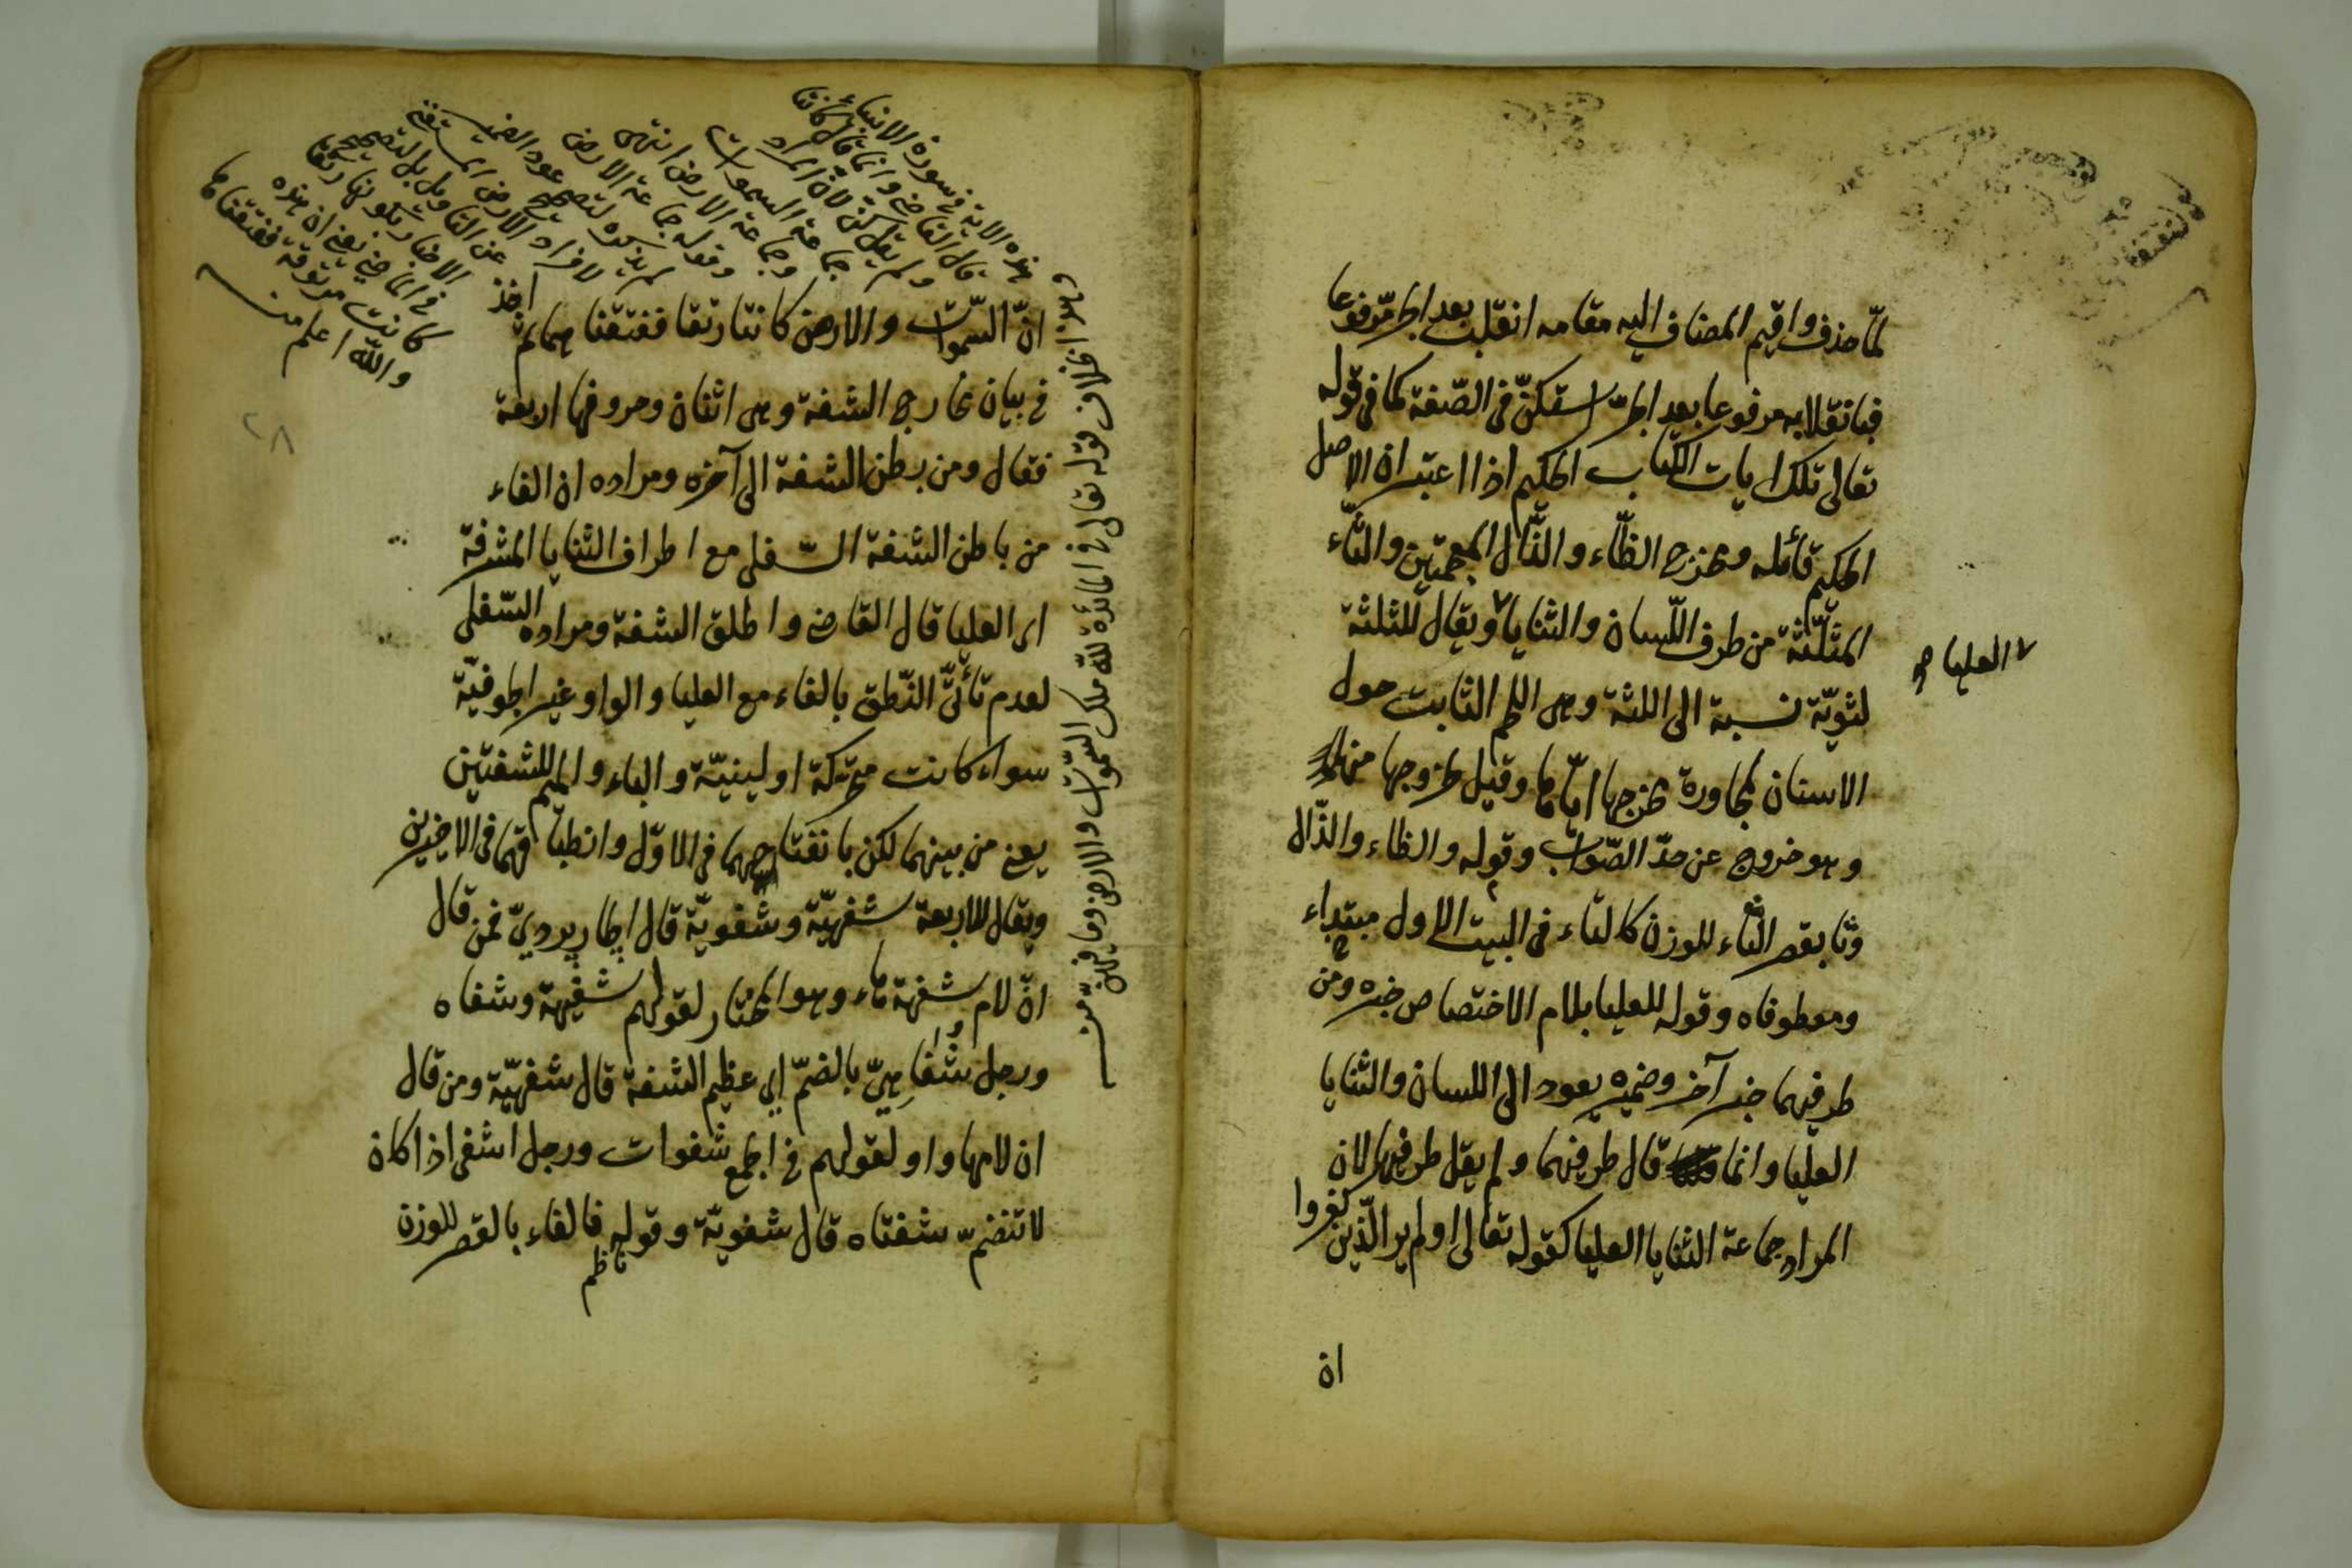 لمّا حذف واقيم المضاف اليه مقامه انقلب بعد الجرّ مرفوعا
فبانقلابه مرفوعا بعد الجرّ استكنّ فى الصّفة كما فى قوله
تعالى تلك ايات الكتاب الحكيم اذا اعتبر ان الاصل
الحكيم قائله ومخرج الظّاء والذّال المعجمتين والثّاء
المثلّثة من طرف اللّسان والثنايا ويقال للثلثة
العليا صح
لثويّة نسبة الى اللثة وهى اللحم النابت حول
الاسنان لمجاورة مخرجها ايّاها وقيل لخروجها منها
وهو خروج عن حدّ الصّواب وقوله والظاء والذّال
وثا بقصر الثاء للوزن كالتاء فى البيت الاول مبتداء
ومعطوفاه وقوله للعليا بلام الاختصاص خبره ومن
طرفيهما خبر آخر وضميره يعود الى اللسان والثنايا
العليا وانما قال طرفيهما ولم يقل طرفيها لان
المراد جماعة الثنايا العليا كقوله تعالى اولم ير الّذين كفروا
ان
هذه الاية فى سورة الانبياء
قال القاضى وانما قال كانتا
ولم يقل كنّ لانّ المراد
جماعة السموات
وجماعة الارض انتهى
وقوله جماعة الارض
لم يذكره لتصحيح عود الضمير
لافراد الارض
عن التأويل بل لتصحيح
الاخبار بكونها رتقا
فى الماضى يعنى ان هذه
كانت مرتوقة ففتقناها
والله اعلم منه
وهو اخلاف قوله تعالى فى المائدة لله ملك السّموات والارض وما فيهنّ منه
انّ السّموات والارض كانتا رتقا ففتقناهما ثم اخذ
فى بيان مخارج الشفة وهى اثنان وحروفها اربعة
فقال ومن بطن الشفة الى آخره ومراده ان الفاء
من باطن الشفة السّفلى مع اطراف الثنايا المشرفة
اى العليا قال القاضى واطلق الشفة ومراده السّفلى
لعدم تأتّى النّطق بالفاء مع العليا والواو غير الجوفيّة
سواء كانت متحركة او لينيّة والباء والميم للشفتين
يعنى من بينهما لكن بانفتاحهما فى الاوّل وانطباقهما فى الاخيرين
ويقال للاربعة شفهيّة وشفويّة قال الجاربرديّ فمن قال
انّ لام شفهة هاء وهو المختار لقولهم شفيهة وشفاه
ورجل شفاهيّ بالضمّ اى عظيم الشفة قال شفهيّة ومن قال
ان لامها واو لقولهم فى الجمع شفوات ورجل اشفى اذا كان
لا تنضمّ شفتاه قال شفويّة وقوله فالفاء بالقصر للوزن
ناظم
٢٨